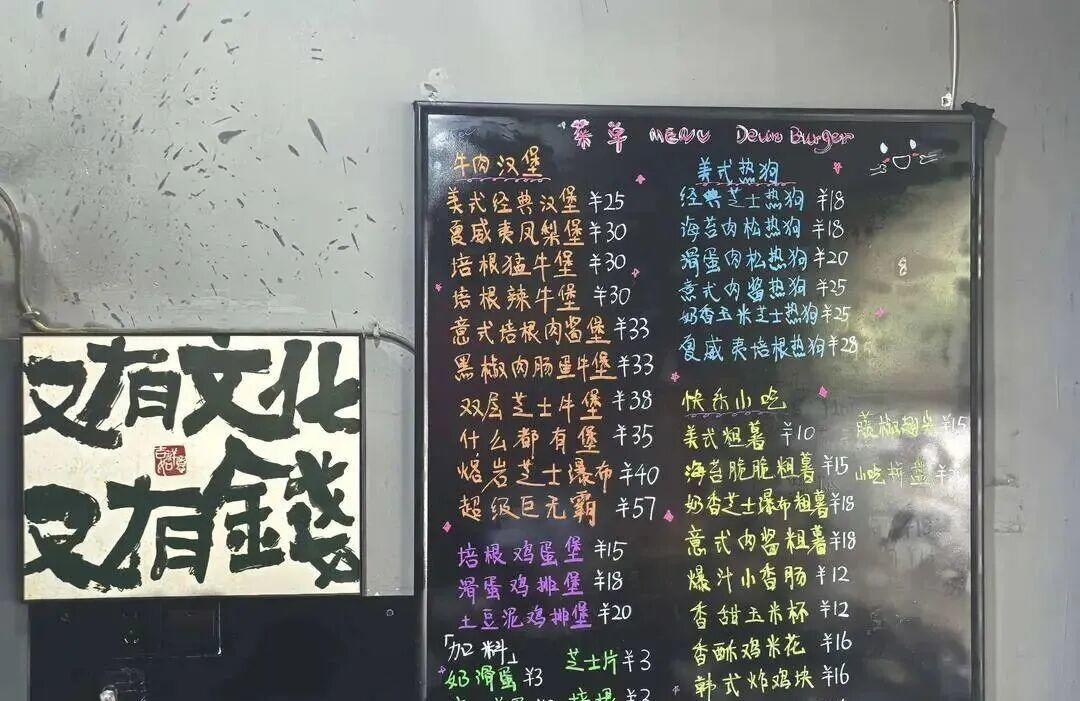 菜单 MENU Devin Burger
牛肉汉堡
美式经典汉堡 ¥25
夏威夷凤梨堡 ¥30
培根猛牛堡 ¥30
培根辣牛堡 ¥30
意式培根肉酱堡 ¥33
黑椒肉肠蛋牛堡 ¥33
双层芝士牛堡 ¥38
什么都有堡 ¥35
熔岩芝士瀑布 ¥40
超级巨无霸 ¥57
培根鸡蛋堡 ¥15
滑蛋鸡排堡 ¥18
土豆泥鸡排堡 ¥20
「加料」
奶滑蛋 ¥3 芝士片 ¥3
培根
美式热狗
经典芝士热狗 ¥18
海苔肉松热狗 ¥18
滑蛋肉松热狗 ¥20
意式肉酱热狗 ¥25
奶香玉米芝士热狗 ¥25
夏威夷培根热狗 ¥28
快乐小吃
美式粗薯 ¥10
海苔脆脆粗薯 ¥15
奶香芝士瀑布粗薯 ¥18
意式肉酱粗薯 ¥18
爆汁小香肠 ¥12
香甜玉米杯 ¥12
香酥鸡米花 ¥16
韩式炸鸡块 ¥16
藤椒翅尖 ¥15
小吃拼盘
又有文化
又有錢